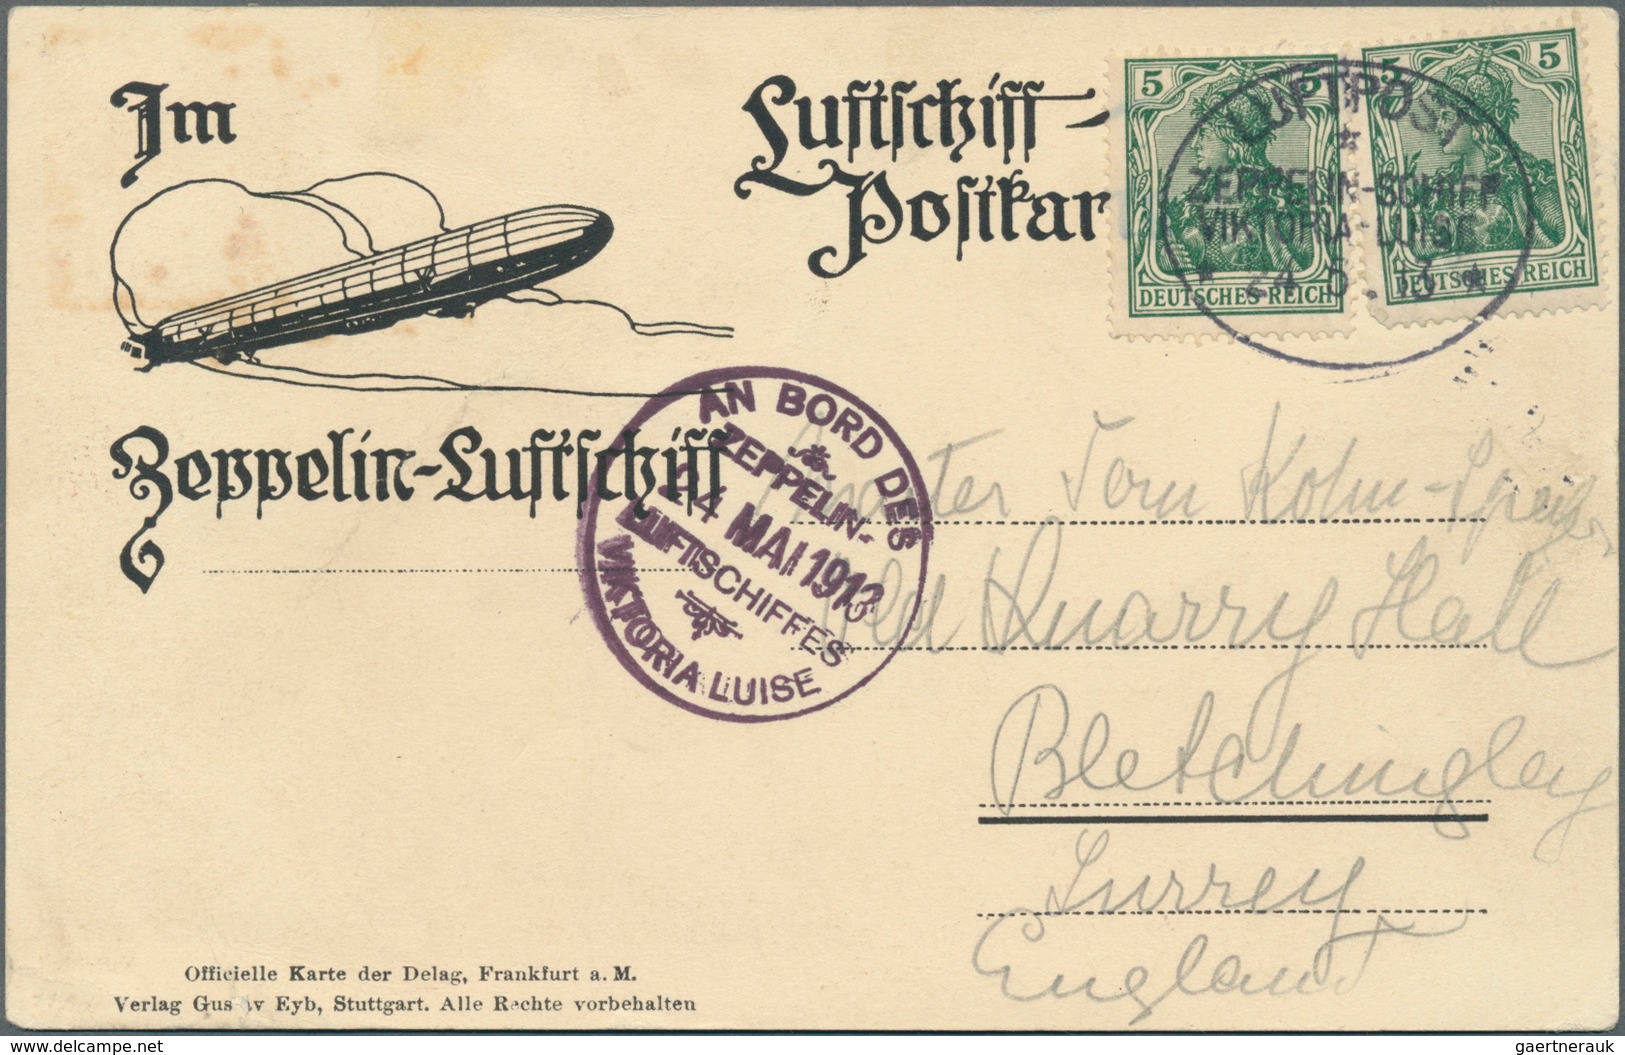 Im
Luftschiff-
Postkar
Zeppelin-Luftschiff
5 5
DEUTSCHES REICH
5 5
DEUTSCHES REICH
LUFTPOST
ZEPPELIN-SCHIFF
VIKTORIA-LUISE
* 24.5.13 *
AN BORD DES
ZEPPELIN-
24 MAI 1913
LUFTSCHIFFES
VIKTORIA LUISE
Master Tom Kohn-Speyer
Old Quarry Hall
Bletchingley
Surrey
England
Officielle Karte der Delag, Frankfurt a. M.
Verlag Gus av Eyb, Stuttgart. Alle Rechte vorbehalten
www.delcampe.net
gaertnerauk